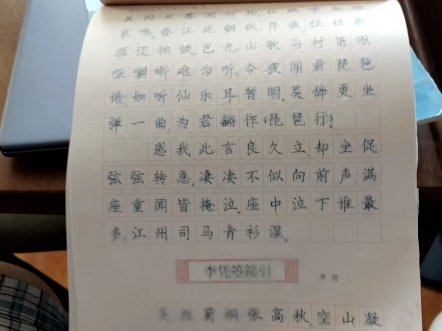 哀鸣。春江花朝秋月夜往往取
酒还独倾岂无山歌与村笛呕
哑嘲哳难为听。今夜闻君琵琶
语如听仙乐耳暂明。莫辞更坐
弹一曲,为君翻作《琵琶行》。
感我此言良久立,却坐促
弦弦转急。凄凄不似向前声,满
座重闻皆掩泣。座中泣下谁最
多,江州司马青衫湿。
李凭箜篌引 李贺
吴丝蜀桐张高秋,空山凝